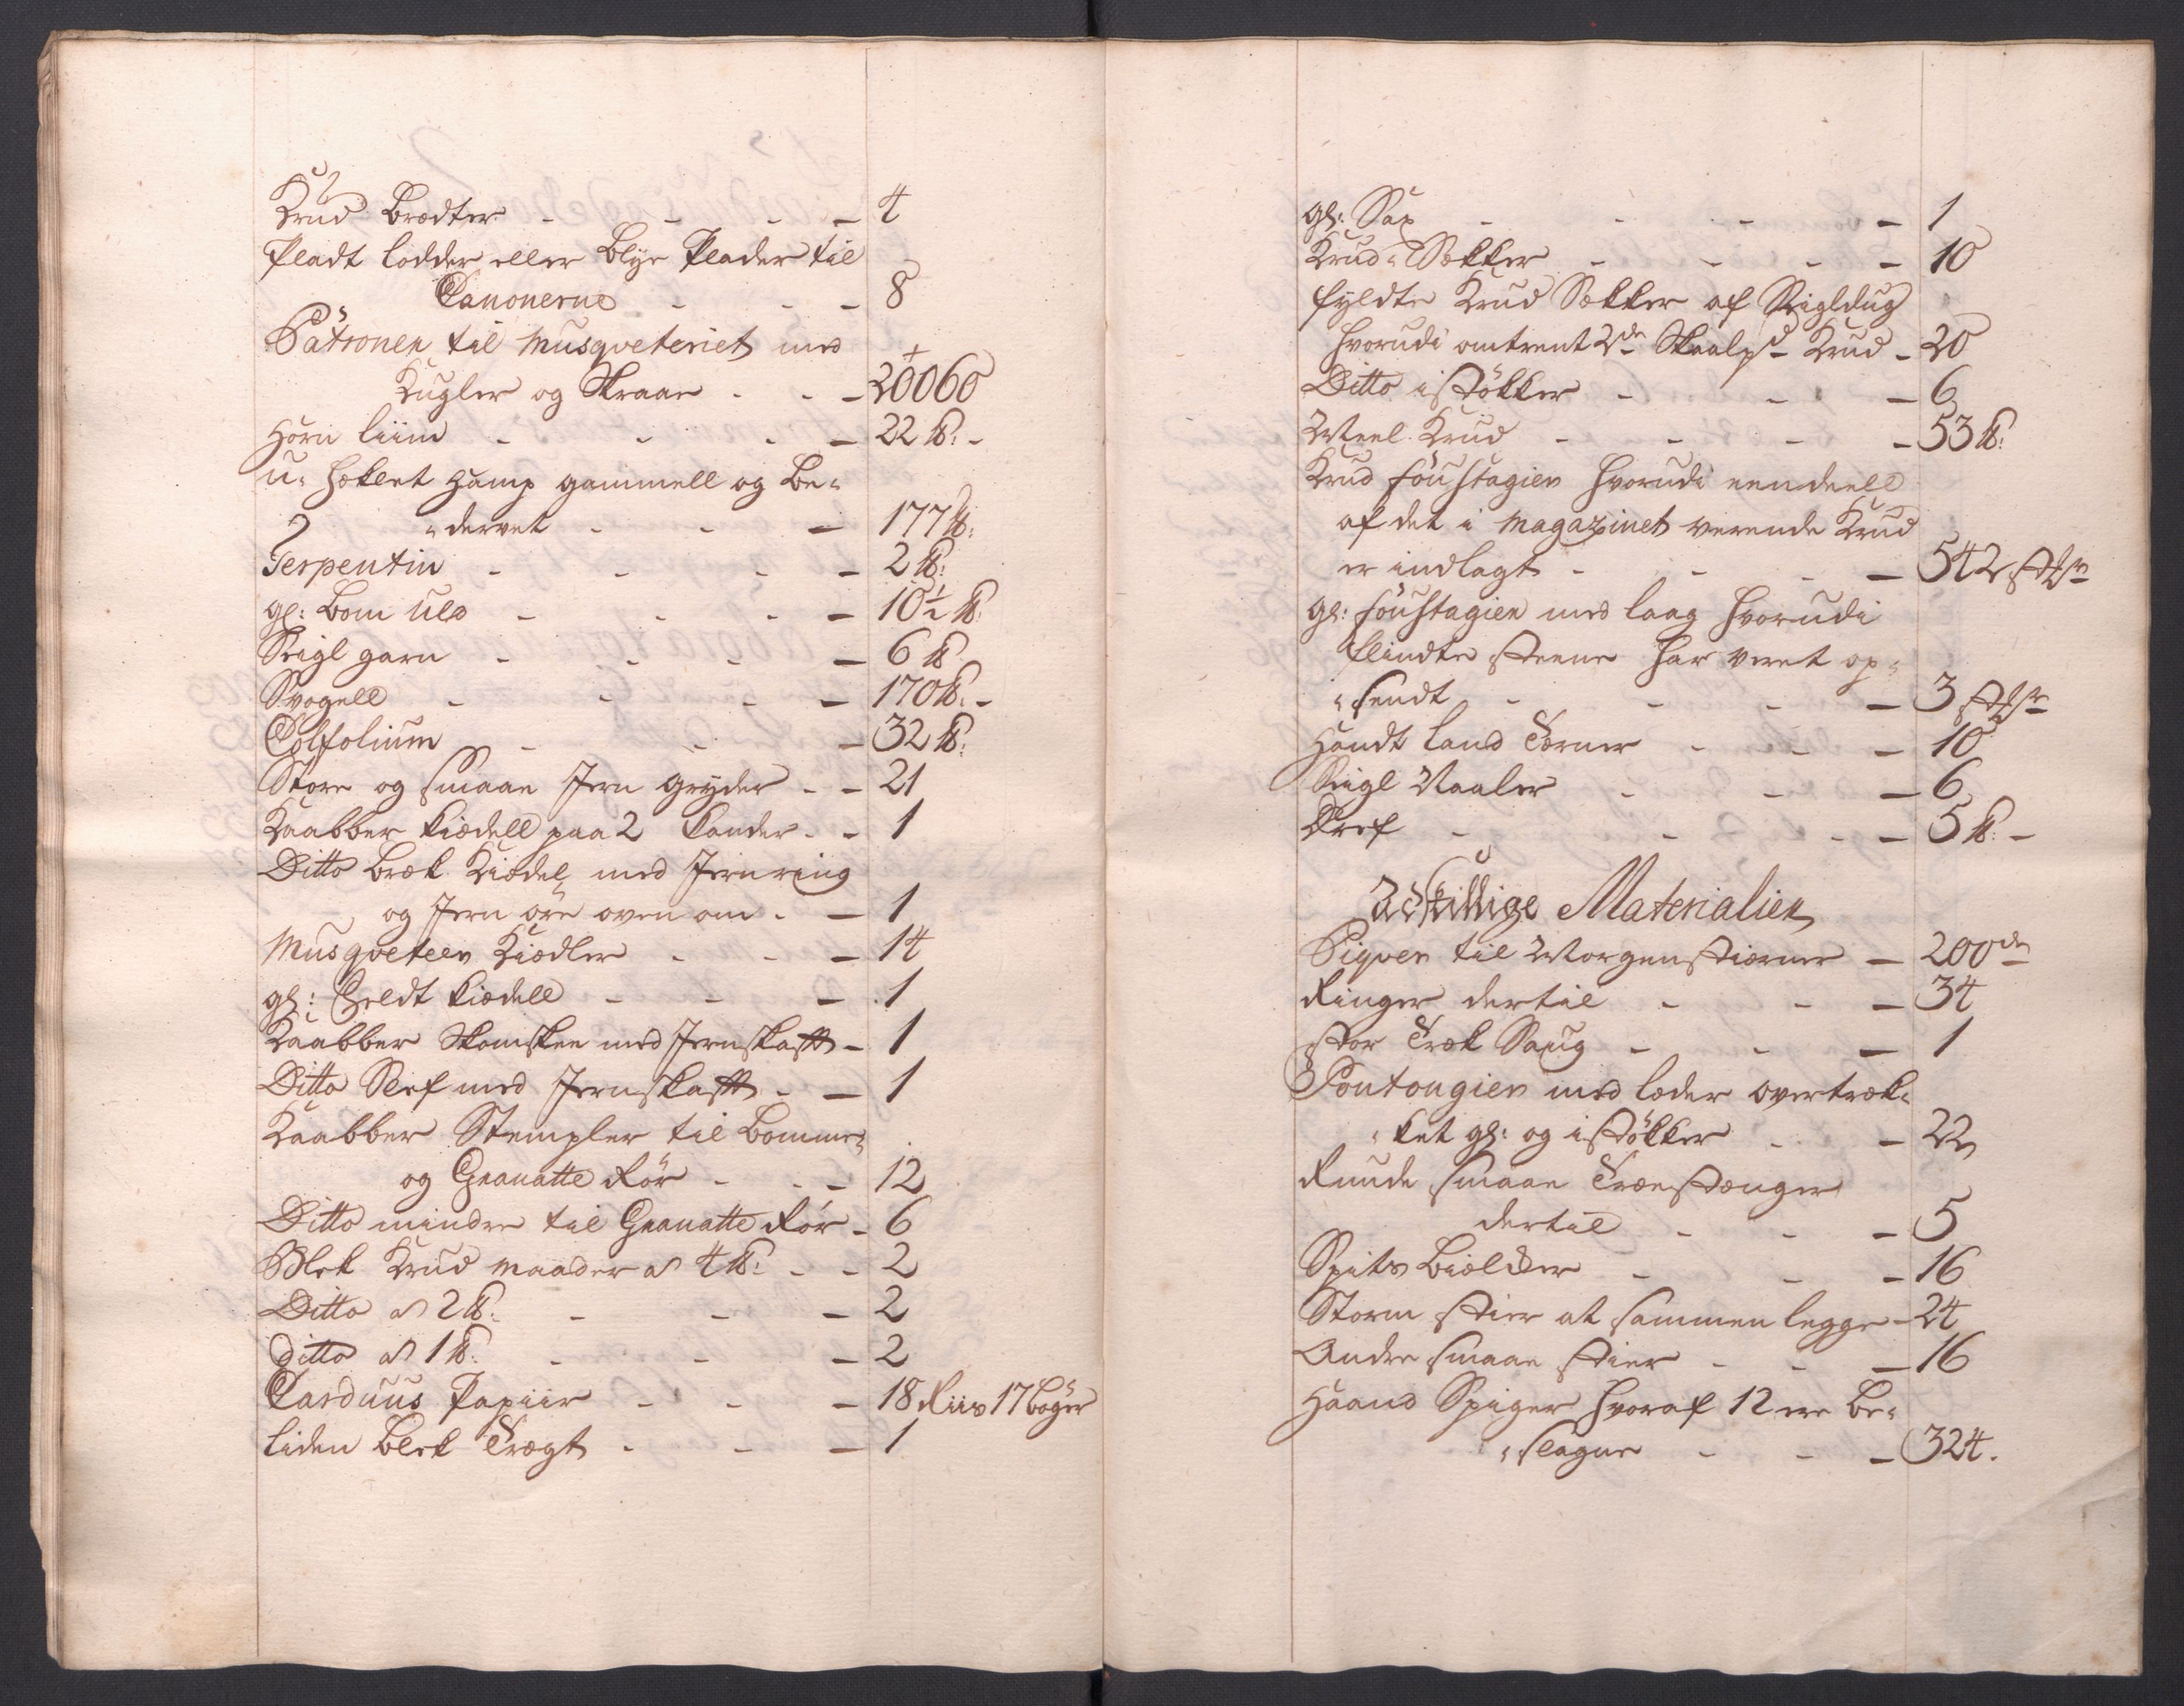 Krud Brædter - - - - 4
Pladt Lodder eller Blye Plader til
Canonerne - - - 8
Patronen til Musqveteriet med
Kugler og Skraae - - - 20060
Horn Liim - - - - 22 ℔: -
u-Hæklet Hamp gammell og be-
-dervet - - - 177 ℔:
Terpentin - - - - 2 ℔:
gl: Bom Uld - - - - 10½ ℔:
Seigl garn - - - - 6 ℔
Svogell - - - - 170 ℔: -
Colfolium - - - 32 ℔:
Store og smaae Jern gryder - - 21
Kaabber Kiædell paa 2 Kander - - 1
Ditto Bræk Kiædel med Jernring
og Jern øre oven om - - 1
Musqveteen Kiædler - - - 14
gl: Feldt Kiædell - - - 1
Kaabber Skomskee med Jernskafft - 1
Ditto Sleef med Jernskafft - - 1
Kaabber Stempler til Bomme-
og Granatte Rör - - - 12
Ditto mindre til Granatte Rör - 6
Blek Krud Maader a 4 ℔: - - 2
Ditto a 2 ℔: - - - 2
Ditto a 1 ℔: - - - 2
Carduus Papiir - - - 18 Riis 17 Bøger
Liden Blek Trægt - - - 1
gl: Sax - - - - 1
Krud-Sækker - - - - 10
fyldte Krud Sækker af Seigldug
hvorudi omtrent 2de Skaalpd Krud - 20
Ditto i støkker - - - 6
Meel Krud - - - - 53 ℔:
Krud Foustagier hvorudi eendeell
af det i Magazinet verende Krud
er indlagt - - - - 542 stkr
gl: Foustagier med Laag hvorudi
Flindte steene har veret op-
-sendt - - - - 3 stkr
Handt Land Terner - - - 10
Seigl Naaler - - - 6
Dref - - - - 5 ℔: -
Adskillige Materialier
Piqver til Morgenstierner - 200de
Ringer dertil - - - 34
stor Træk Saug - - - 1
Pontongier med læder overtræk-
-ket gl: og i støkker - - 22
Runde smaae Træestænger
dertil - - - 5
Spits Biælder - - - 16
Storm stier at sammen legge - 24
Andre smaae stier - - - 16
Haand Spiger hvoraf 12 ere be-
-slagne - - - 324.